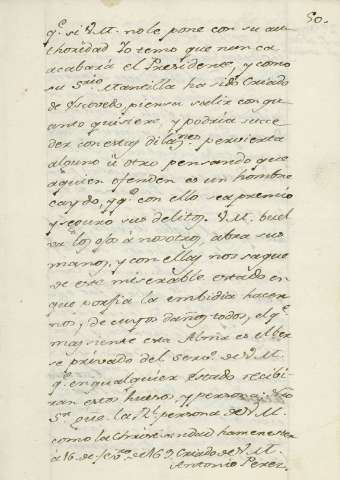 50.
q.e si V.M. no le pone con su au
thoridad Yo temo que nunca
acabará el Presidente, y como
su S.rio Mansilla ha sido Criado
de Escovedo, piensa salir con qu
anto quisiere, y podria suce
der con estas dilaz.nes pervierta
alguno ú otro pensando que
aquien ofenden es un hombre
caydo, y q.e con ello sea premio
y seguro sus delitos. V.M. buel
va los ojos á nosotros, abra sus
manos, y con ellas nos saque
de este miserable estado en
que porfia la embidia hacer
nos, de cuyos daños todos, el q.e
mas siente esta Alma es el ber
se privado del serv.o de V.M.
q.e en qualquier estado recibi
ran estos huesos, y persona.
S.or que la R.l persona de V.M.
como la Christiandad ha menester
a 16 de de Criado de V.M.
Antonio Perez